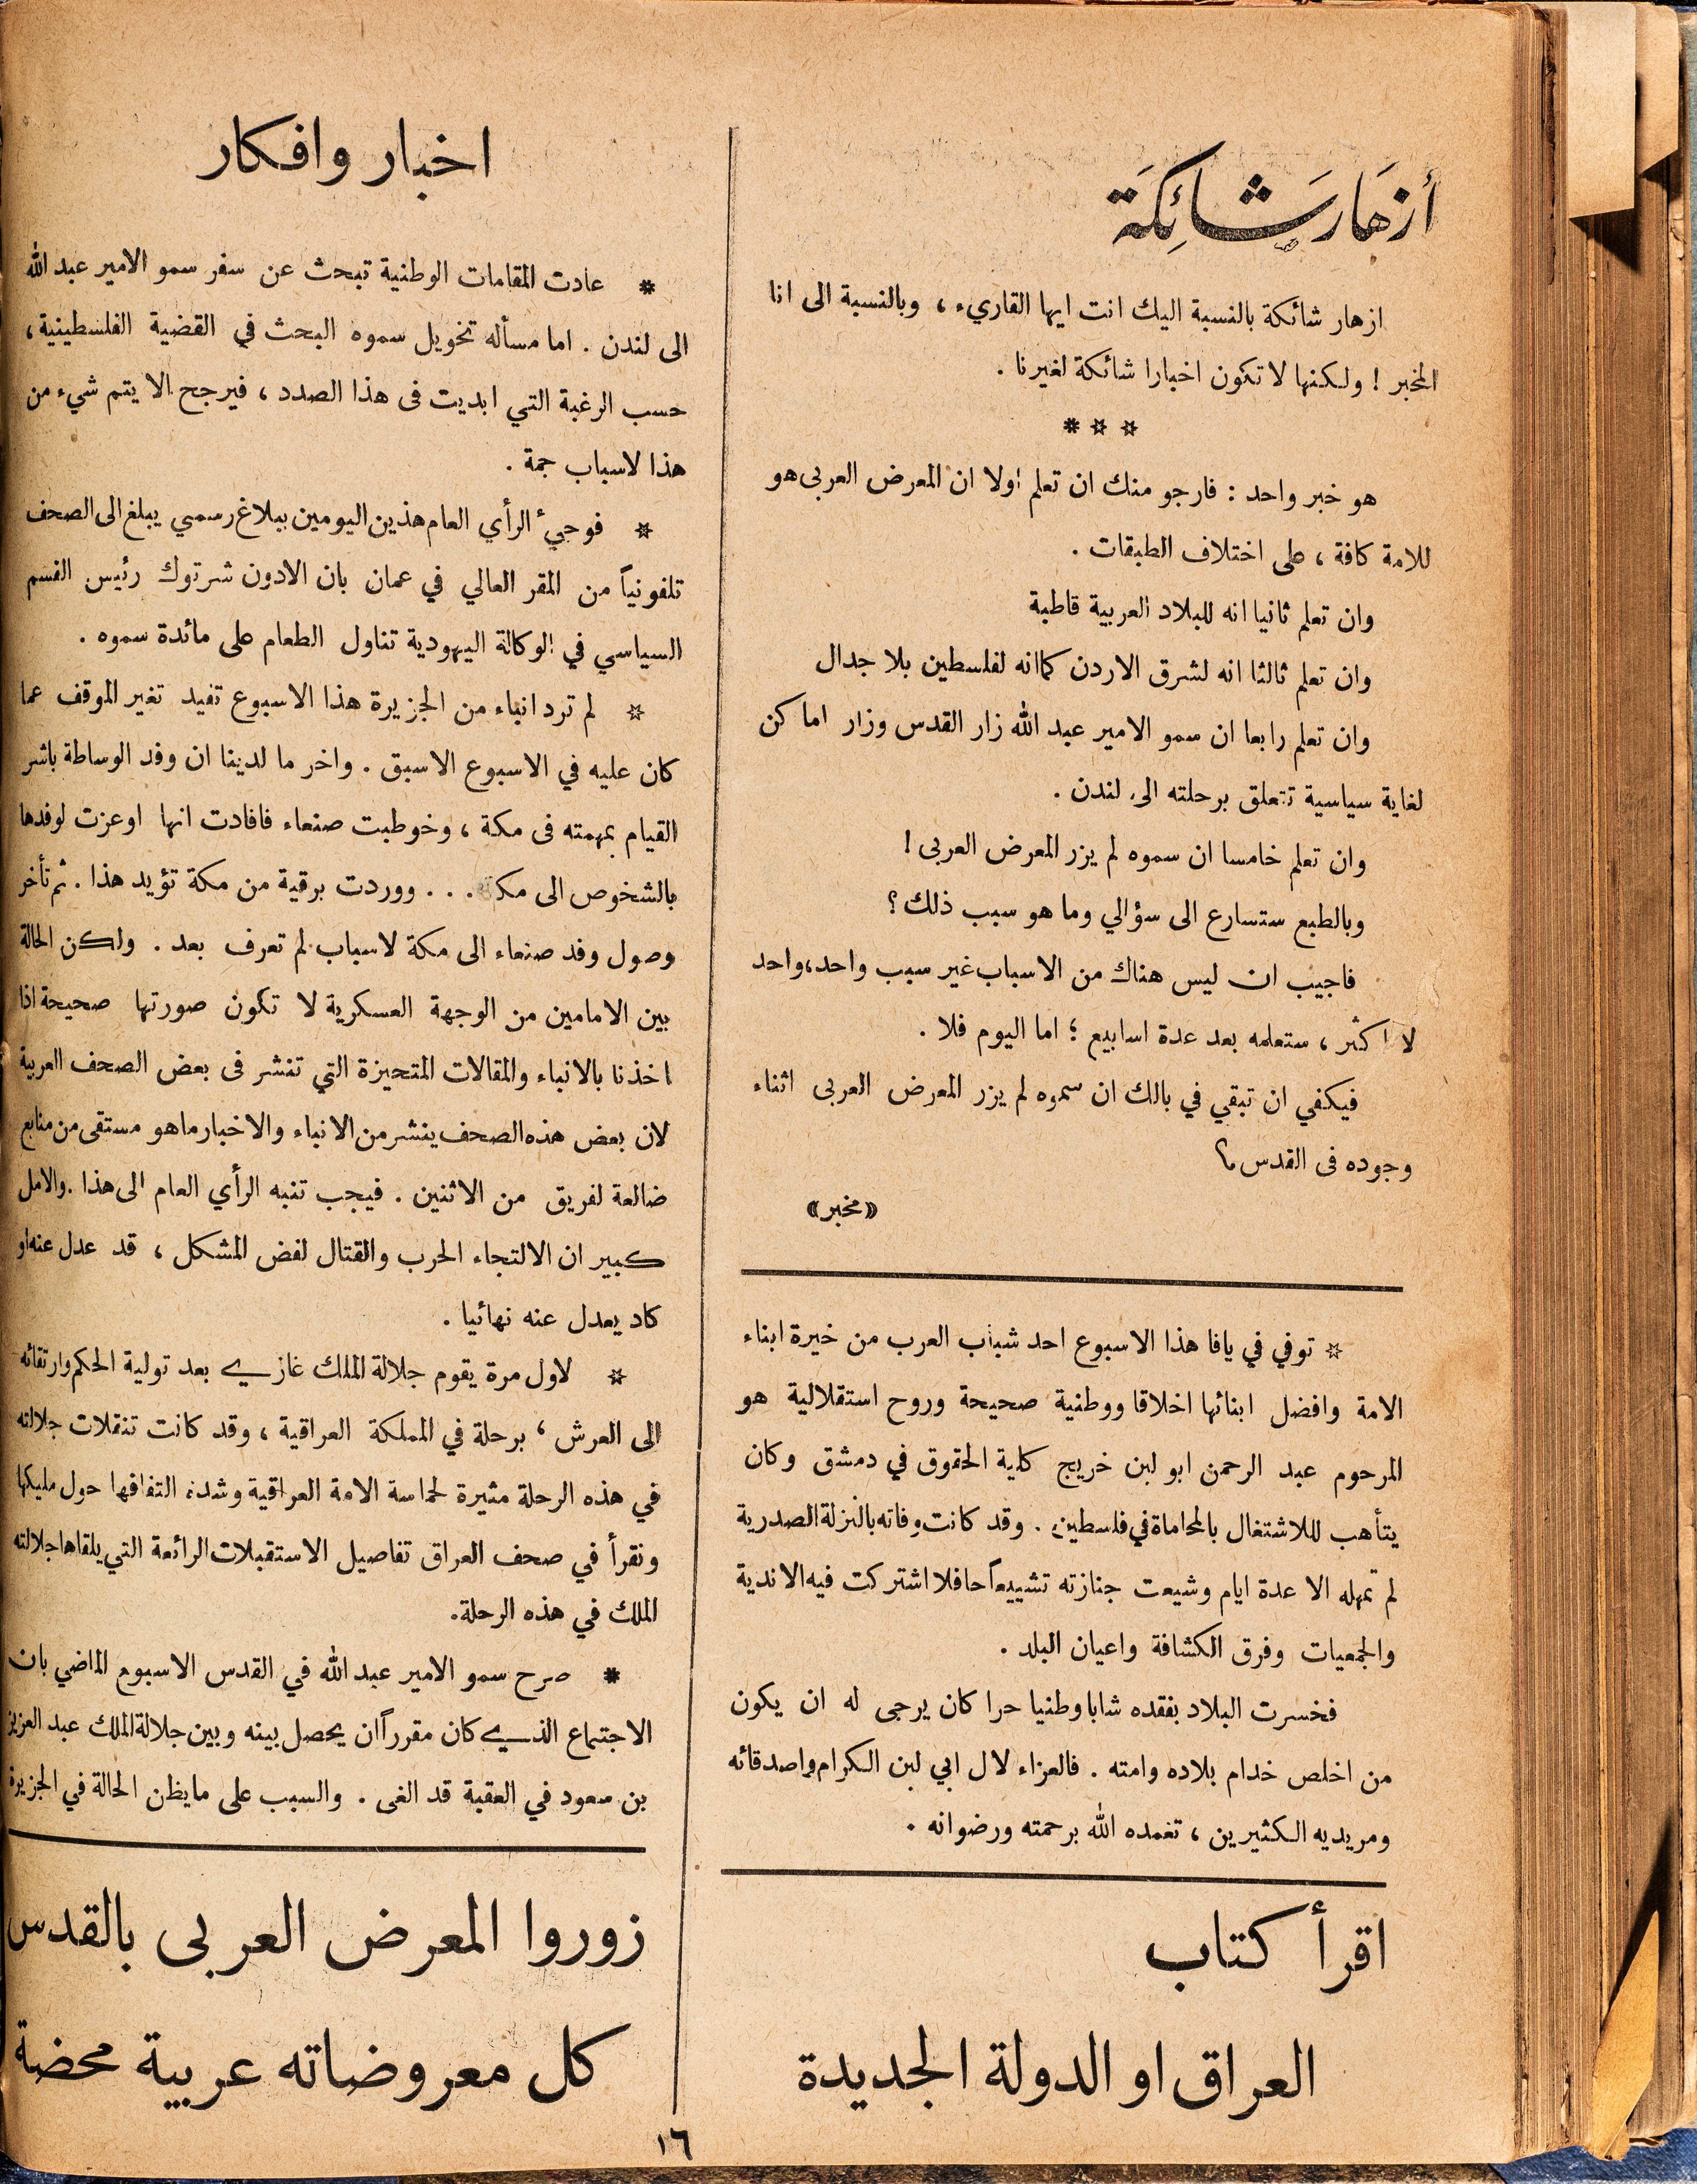 أزهَار شَائِكَة
ازهار شائكة بالنسبة اليك انت ايها القاريء ، وبالنسبة الى انا
المخبر ! ولكنها لا تكون اخبارا شائكة لغيرنا .
* * *
هو خبر واحد : فارجو منك ان تعلم اولا ان المعرض العربى هو
للامة كافة ، على اختلاف الطبقات .
وان تعلم ثانيا انه للبلاد العربية قاطبة
وان تعلم ثالثا انه لشرق الاردن كما انه لفلسطين بلا جدال
وان تعلم رابعا ان سمو الامير عبد الله زار القدس وزار اماكن
لغاية سياسية تتعلق برحلته الى لندن .
وان تعلم خامسا ان سموه لم يزر المعرض العربى !
وبالطبع ستسارع الى سؤالي وما هو سبب ذلك ؟
فاجيب ان ليس هناك من الاسباب غير سبب واحد، واحد
لا اكثر ، ستعلمه بعد عدة اسابيع ؛ اما اليوم فلا .
فيكفي ان تبقي في بالك ان سموه لم يزر المعرض العربى اثناء
وجوده فى القدس ؟
«مخبر»
* توفي في يافا هذا الاسبوع احد شباب العرب من خيرة ابناء
الامة وافضل ابنائها اخلاقا ووطنية صحيحة وروح استقلالية هو
المرحوم عبد الرحمن ابو لبن خريج كلية الحقوق في دمشق وكان
يتأهب للاشتغال بالمحاماة في فلسطين . وقد كانت وفاته بالنزلة الصدرية
لم تمهله الا عدة ايام وشيعت جنازته تشييعاً حافلا اشتركت فيه الاندية
والجمعيات وفرق الكشافة واعيان البلد .
فخسرت البلاد بفقده شابا وطنيا حرا كان يرجى له ان يكون
من اخلص خدام بلاده وامته . فالعزاء لال ابي لبن الكرام واصدقائه
ومريديه الكثيرين ، تغمده الله برحمته ورضوانه .
اقرأ كتاب
العراق او الدولة الجديدة
اخبار وافكار
* عادت المقامات الوطنية تبحث عن سفر سمو الامير عبد الله
الى لندن . اما مسأله تخويل سموه البحث في القضية الفلسطينية ،
حسب الرغبة التي ابديت فى هذا الصدد ، فيرجح الا يتم شيء من
هذا لاسباب جمة .
* فوجيء الرأي العام هذين اليومين ببلاغ رسمي يبلغ الى الصحف
تلفونياً من المقر العالي في عمان بان الادون شرتوك رئيس القسم
السياسي في الوكالة اليهودية تناول الطعام على مائدة سموه .
* لم ترد انباء من الجزيرة هذا الاسبوع تفيد تغير الموقف عما
كان عليه في الاسبوع الاسبق . واخر ما لدينا ان وفد الوساطة باشر
القيام بمهمته فى مكة ، وخوطبت صنعاء فافادت انها اوعزت لوفدها
بالشخوص الى مكة . . . ووردت برقية من مكة تؤيد هذا . ثم تأخر
وصول وفد صنعاء الى مكة لاسباب لم تعرف بعد . ولكن الحالة
بين الامامين من الوجهة العسكرية لا تكون صورتها صحيحة اذا
اخذنا بالانباء والمقالات المتحيزة التي تنشر فى بعض الصحف العربية
لان بعض هذه الصحف ينشر من الانباء والاخبار ما هو مستقى من منابع
ضالعة لفريق من الاثنين . فيجب تنبه الرأي العام الى هذا . والامل
كبير ان الالتجاء الحرب والقتال لفض المشكل ، قد عدل عنه او
كاد يعدل عنه نهائيا .
* لاول مرة يقوم جلالة الملك غازي بعد تولية الحكم وارتقائه
الى العرش ، برحلة في المملكة العراقية ، وقد كانت تنقلات جلالته
في هذه الرحلة مثيرة لحماسة الامة العراقية وشدة التفافها حول مليكها
ونقرأ في صحف العراق تفاصيل الاستقبلات الرائعة التي يلقاها جلالته
الملك في هذه الرحلة.
* صرح سمو الامير عبد الله في القدس الاسبوع الماضي بان
الاجتماع الذي كان مقرراً ان يحصل بينه وبين جلالة الملك عبد العزيز
بن سعود في العقبة قد الغى . والسبب على ما يظن الحالة في الجزيرة
زوروا المعرض العربى بالقدس
كل معروضاته عربية محضة
١٦